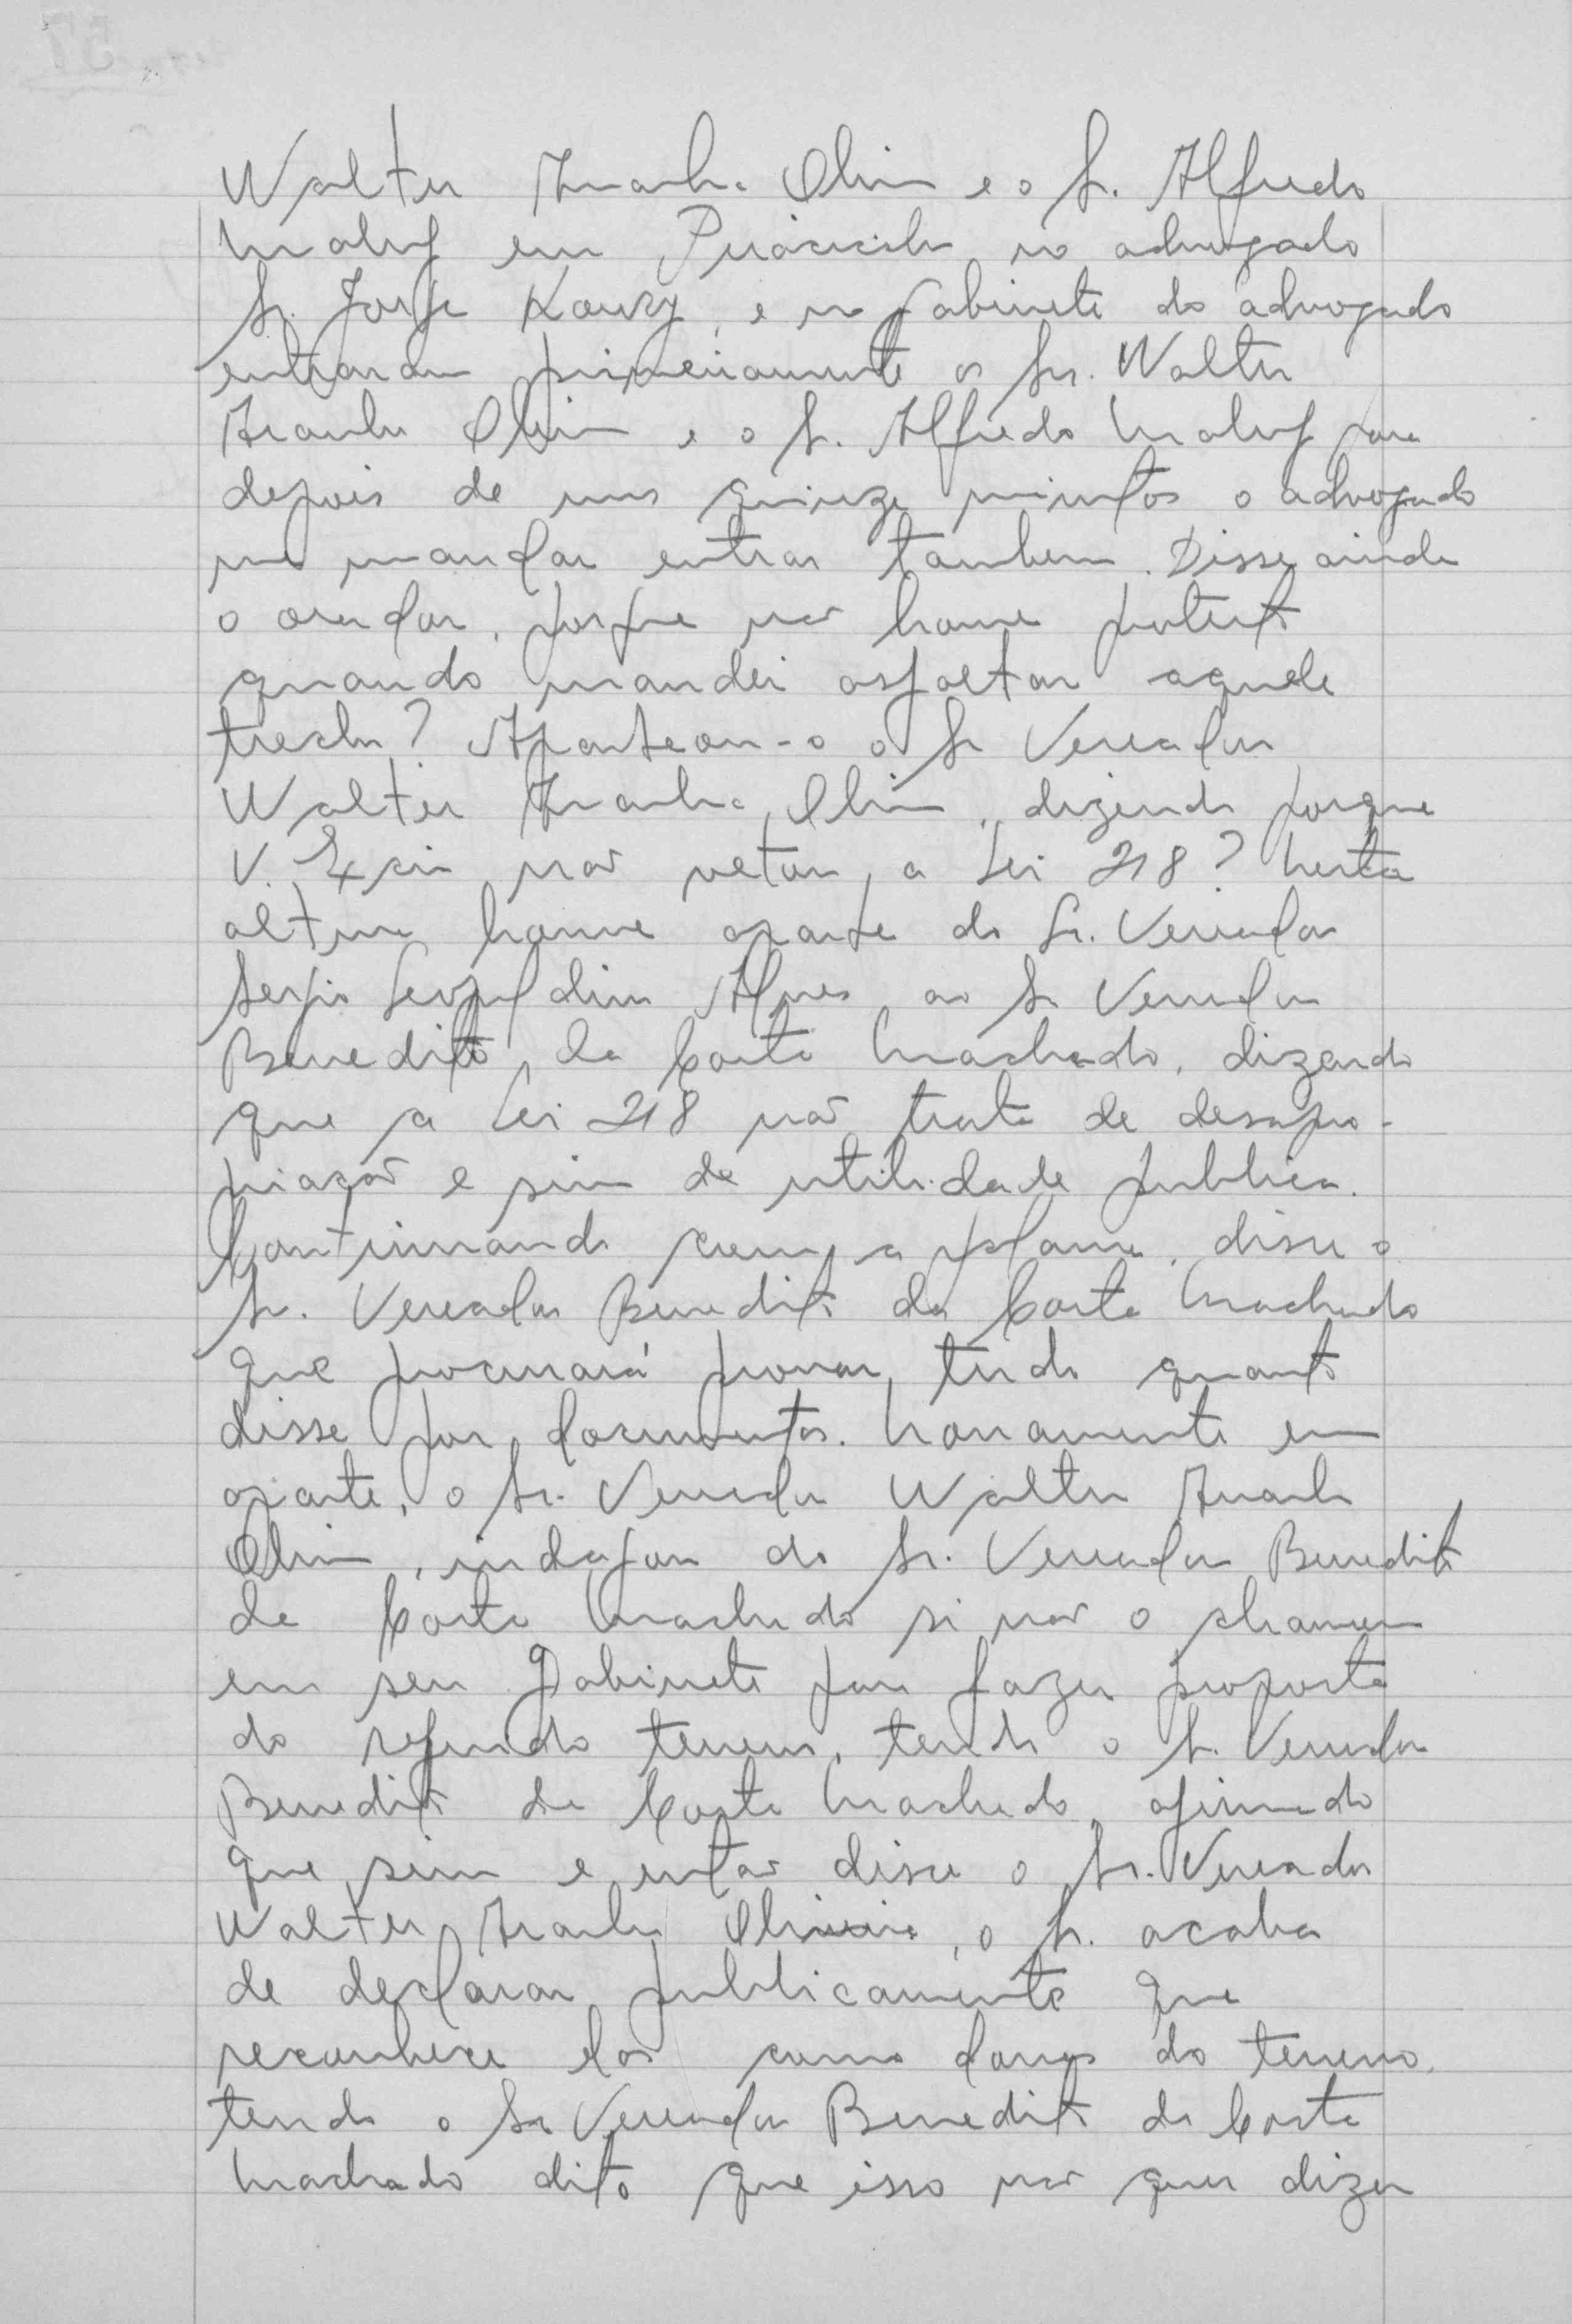 Walter Aranha Olivi e o Sr. Alfredo
Maluf em Piracicaba no advogado
Sr. Jorge Koury, e no gabinete do advogado
entraram primeiramente os Srs. Walter
Aranha Olivi e o Sr. Alfredo Maluf para
depois de uns quinze minutos o advogado
me mandar entrar tambem. Disse ainda
o orador, porque não houve protesto
quando mandei asfaltar aquele
trecho? Aparteou-o o Sr Vereador
Walter Aranha Olivi, dizendo porque
V. Excia não vetou a Lei 218? Nesta
altura houve aparte do Sr. Vereador
Sergio Leopoldino Alves ao Sr Vereador
Benedito da Costa Machado, dizendo
que a Lei 218 não trata de desapro-
priação e sim de utilidade publica.
Continuando com a palavra, disse o
Sr. Vereador Benedito da Costa Machado
que procurará provar tudo quanto
disse por documentos. Novamente em
aparte, o Sr. Vereador Walter Aranha
Olivi, indagou do Sr. Vereador Benedito
da Costa Machado si não o chamou
em seu Gabinete para fazer proposta
do referido terreno, tendo o Sr. Vereador
Benedito da Costa Machado afirmado
que sim e então disse o Sr. Vereador
Walter Aranha, o Sr. acaba
de declarar publicamente que
reconhece elas como donas do terreno,
tendo o Sr Vereador Benedito da Costa
Machado dito que isso não quer dizer